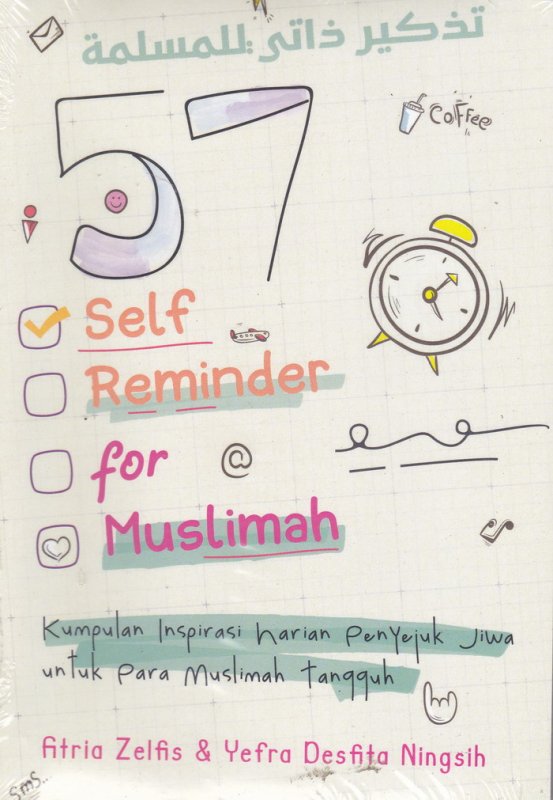 تذكير ذاتي للمسلمة
57
Coffee
Self
Reminder
for
@
Muslimah
Kumpulan Inspirasi harian Penyejuk Jiwa
untuk Para Muslimah tangguh
Fitria Zelfis & Yefra Desfita Ningsih
SMS..